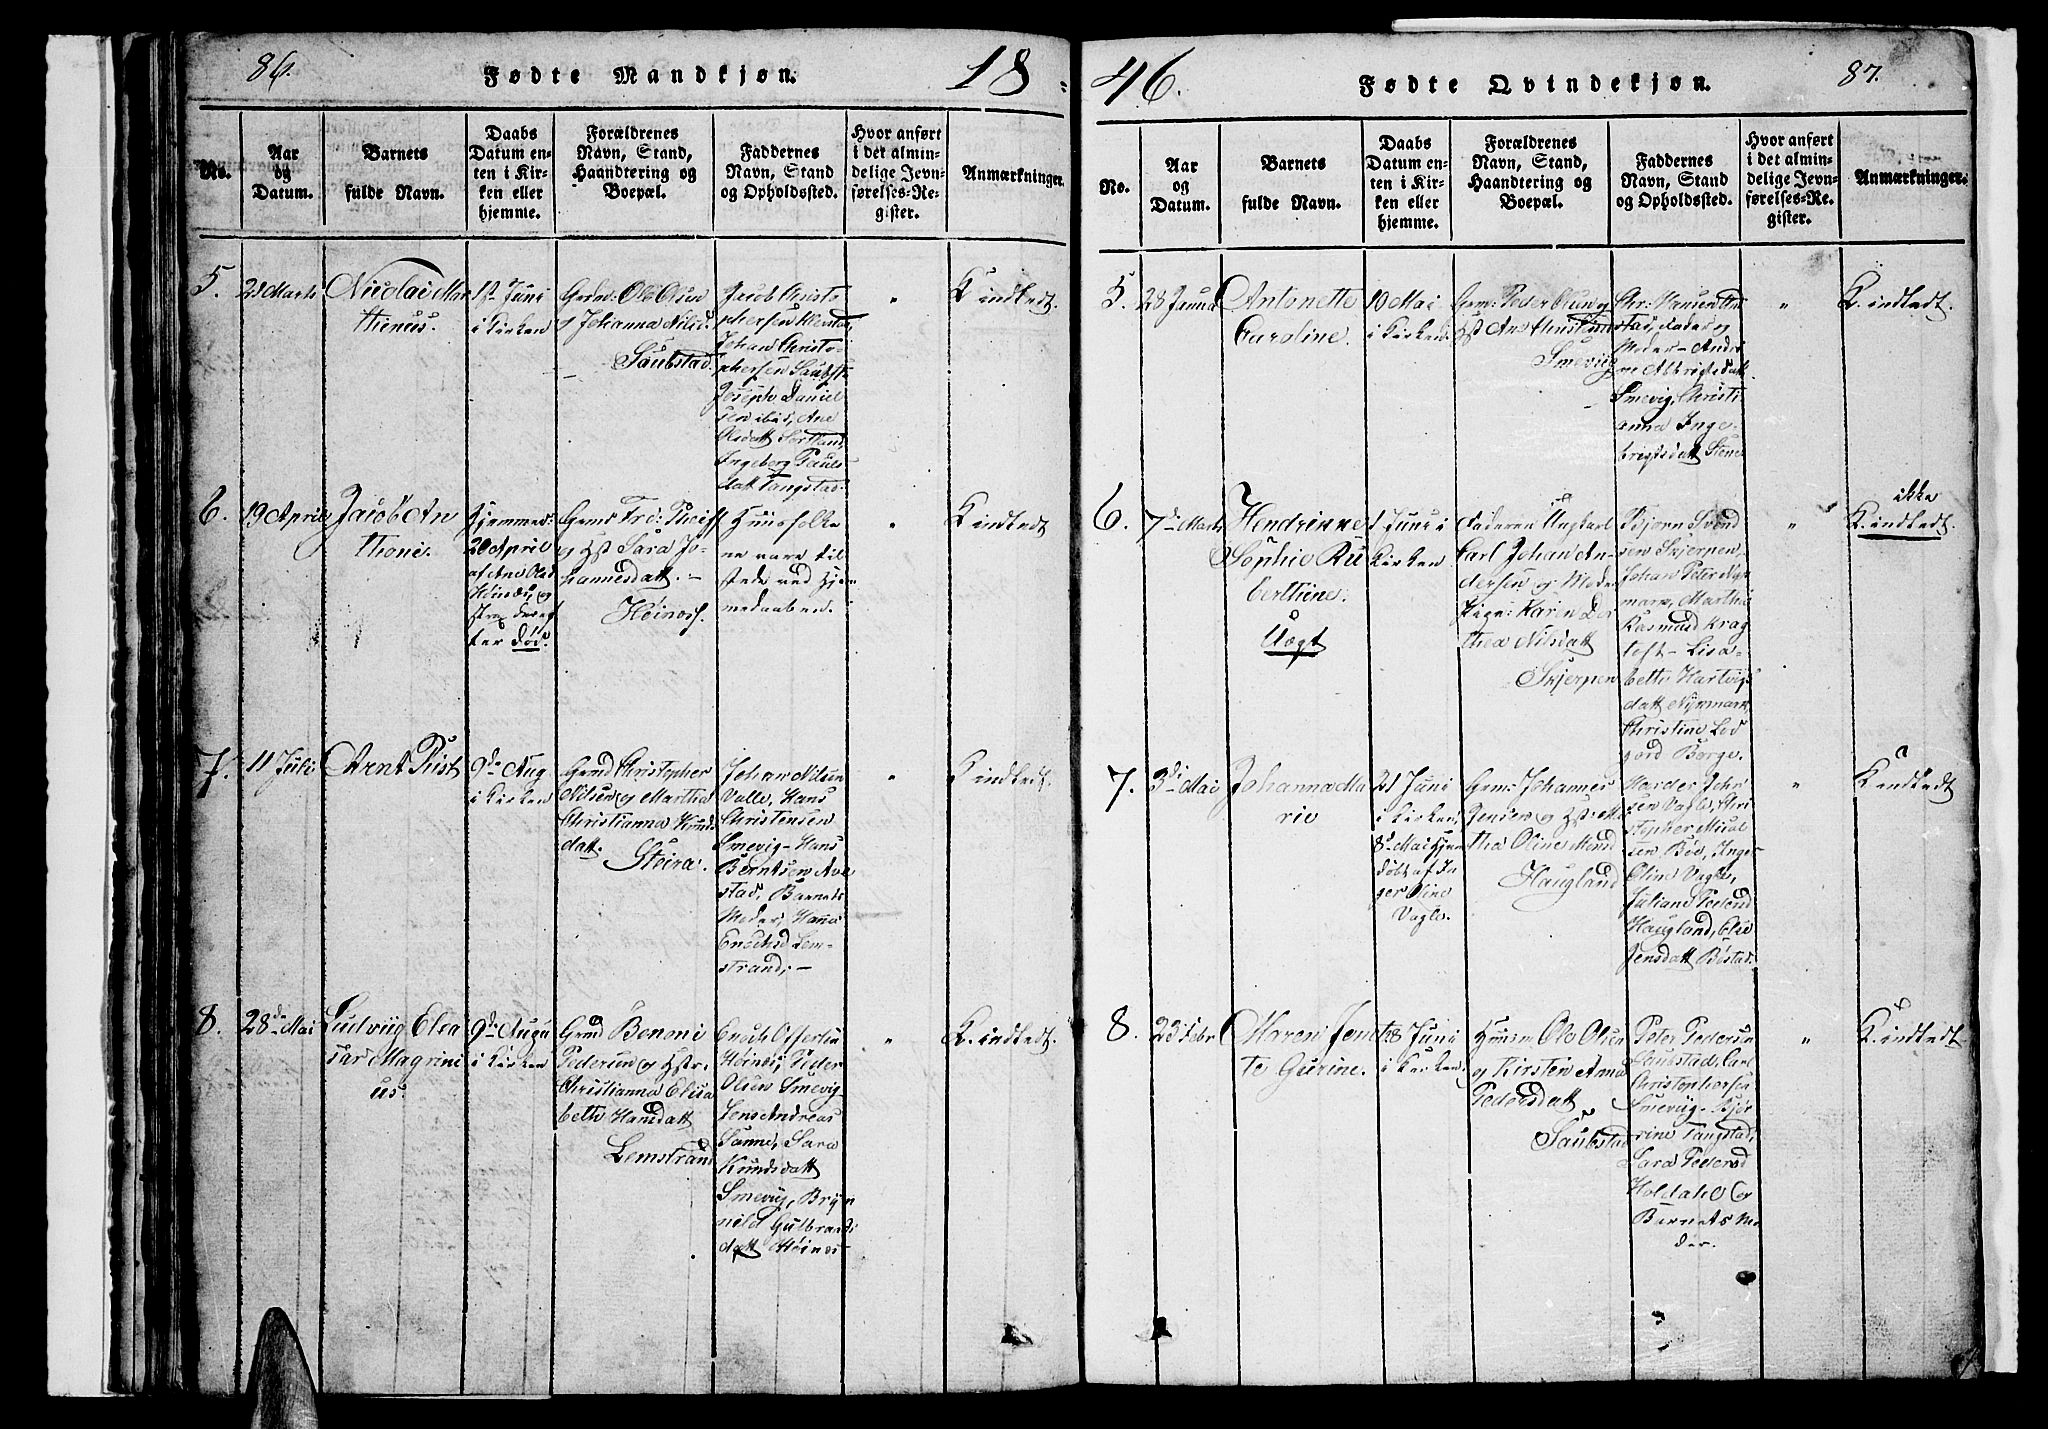 86.
Fødte Mandkjøn.
18
No.
Aar
og
Datum.
Barnets
fulde Navn.
Daabs
Datum en-
ten i Kir-
ken eller
hjemme.
Forældrenes
Navn, Stand,
Haandtering og
Boepæl.
Faddernes
Navn, Stand
og Opholdssted.
Hvor anført
i det almin-
delige Jevn-
førelses-Re-
gister.
Anmærkninger.
5.
Nicolai Mar
thinus.
1st Juni
i Kirken
Grmd: Ole Olsen
og Johanna Nilsd.
Saubstad.
Jacob Christo
phersen
Johan Christo-
phersen Saubst:
Joseph Daniel
sen ibid, Ane
Olsdatt Sortland,
Ingeborg Pauls
datt Tangstad.
"
K. indledt
6.
19 April
Jacob An
thoni.
Hjemmed:
20 April
af Ane Olsd
Høinæs, og
strax deref
ter død.
og Hst Sara Jo-
hannesdatt. -
Høinæs.
Huusfolke
ne vare til
stede ved Hjem
medaaben.
"
K indledt
7.
11 Juli
Arent Rist
9de Aug
i Kirken
Grmd Christopher
Nilsen og Martha
Christianna Knuds
datt.
Steira.
Johan Nilsen
Valle, Hans
Christensen
Smevig - Hans
Berntsen Ave
stad, Barnets
Moder, Hanna
Enochsd Lem-
strand, -
"
K indledt.
8.
28de Mai
Ludvig Elea
sar Magrini
us.
9de Augu
i Kirken
Grmd Benoni
Pedersen og Hstr.
Christianna Elisa
beth Hansdatt
Lemstrand
Høinæs, Peder
Olsen Smevig
Jens Andreas
Sanne, Sara
Knudsdatt
Smevig, Bryn
nild Gulbrands
datt Høinæs
"
K. indledt.
46.
Fødte Qvindekjøn.
87.
No.
Aar
og
Datum.
Barnets
fulde Navn.
Daabs
Datum en-
ten i Kir-
ken eller
hjemme.
Forældrenes
Navn, Stand,
Haandtering og
Boepæl.
Faddernes
Navn, Stand
og Opholdssted.
Hvor anført
i det almin-
delige Jevn-
førelses-Re-
gister.
Anmærkninger.
5.
28 Januar
Antonette
Caroline.
10 Mai
i Kirken.
Grm: Peder Olsen og
Smevig
Chr: Hansen
stad, Fader og
Moder - Andri
ne Albrigtsdatt
Smevig, Christi-
anna Inge-
brigtsdatt Stene
"
K. indledt.
6.
7de Marts
Hendrikke
Sophie Ru
berthine.
Uægt
1 Juni i
Kirken
Faderen Ungkarl
Carl Johan An-
dersen og Moder
Pige: Karen Do
thea Nilsdatt
Skjerpen
Bjørn Svend
sen Skjerpen,
Johan Peter Nyk
mark, Martha
Rasmusd Krag
toft - Lisa-
beth Hartvigs
datt Nykmark,
Christine
gord Borge.
"
ikke
K. indledt.
7.
3die Mai
Johanna Ma
rie
21 Juni
i Kirken,
8de Mai Hjem
døbt af In
ger Oline
Vagle.
Grm: Johannes
Jensen og Hst: Ma
tha Oline
Haugland
sen Vagle, Chri
stopher
sen Bøe, Inger
Oline Vagle,
Juliana Pedersd
Haugland, Elen
Jensdatt Bøstad.
"
K indledt
8.
23 Febr
Maren Jenet
te Gurine.
28 Juni
i Kirken.
Huusm Ole Olsen
og Kirsten Anna
Pedersdatt
Saubstad
Peter Pedersen
Saubstad, Carl
Christophersen
Smevig - Bjør
rine Tangstad,
Sara Pedersd
Holdahl og
Barnets Mo
der.
"
K. indledt